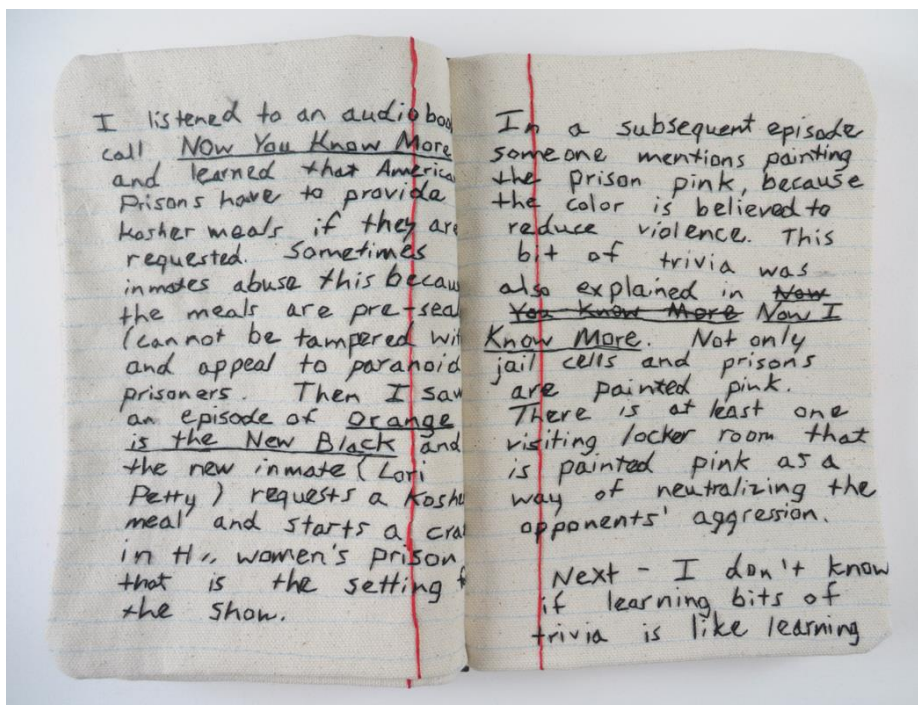 I listened to an audioboo
call Now You Know More
and learned that America
Prisons have to provide
kosher meals if they are
requested. Sometimes
inmates abuse this becau
the meals are pre-seal
(cannot be tampered wit
and appeal to paranoid
prisoners. Then I saw
an episode of Orange
is the New Black and
the new inmate (Lori
Petty) requests a Koshe
meal and starts a cra
in the women's prison
that is the setting f
the show.
In a subsequent episode
someone mentions painting
the prison pink, because
the color is believed to
reduce violence. This
bit of trivia was
also explained in Now
You Know More Now I
Know More. Not only
jail cells and prisons
are painted pink.
There is at least one
visiting locker room that
is painted pink as a
way of neutralizing the
opponents' aggression.
Next - I don't know
if learning bits of
trivia is like learning